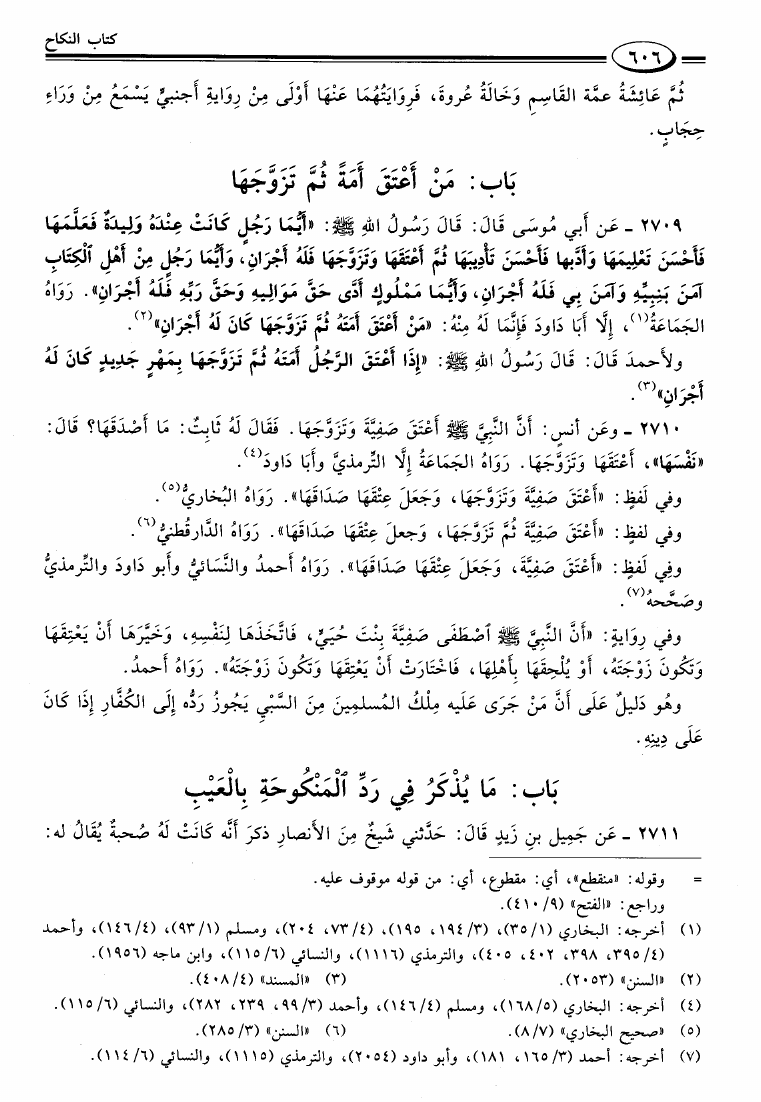 كتاب النكاح
٦٠٦
ثُمَّ عَائِشَةُ عمَّة القَاسِمِ وَخَالَةُ عُروةَ، فَرِوَايَتُهُمَا عَنْهَا أَوْلَى مِنْ رِوَايةِ أجنبيٍّ يَسْمَعُ مِنْ وَرَاءِ
حِجَابٍ.
بَاب: مَنْ أَعْتَقَ أَمَةً ثُمَّ تَزَوَّجَهَا
٢٧٠٩ ـ عَن أبي مُوسَى قَالَ: قَالَ رَسُولُ اللهِ ﷺ: «أَيُّمَا رَجُلٍ كَانَتْ عِنْدَهُ وَلِيدَةٌ فَعَلَّمَهَا
فَأَحْسَنَ تَعْلِيمَهَا وَأَدَّبها فَأَحْسَنَ تَأْدِيبَهَا ثُمَّ أَعْتَقَهَا وَتَزَوَّجَهَا فَلَهُ أَجْرَانِ، وَأَيُّمَا رَجُلٍ مِنْ أَهْلِ ٱلْكِتَابِ
آمَنَ بَنِبِيِّهِ وَآمَنَ بِي فَلَهُ أَجْرَانِ، وَأَيُّمَا مَمْلُوكٍ أَدَّى حَقَّ مَوَالِيهِ وَحَقَّ رَبِّهِ فَلَهُ أَجْرَانِ». رَوَاهُ
الجَمَاعَةُ(١)، إِلَّا أَبَا دَاودَ فَإِنَّمَا لَهُ مِنْهُ: «مَنْ أَعْتَقَ أَمَتَهُ ثُمَّ تَزَوَّجَهَا كَانَ لَهُ أَجْرَانِ»(٢).
ولأحمدَ قَالَ: قَالَ رَسُولُ اللهِ ﷺ: «إِذَا أَعْتَقَ الرَّجُلُ أَمَتَهُ ثُمَّ تَزَوَّجَهَا بِمَهْرٍ جَدِيدٍ كَانَ لَهُ
أَجْرَانِ»(٣).
٢٧١٠ ـ وعَن أنسٍ: أَنَّ النَّبِيَّ ﷺ أَعْتَقَ صَفِيَّةَ وَتَزَوَّجَهَا. فَقَالَ لَهُ ثَابِتٌ: مَا أَصْدَقَهَا؟ قَالَ:
«نَفْسَهَا»، أَعْتَقَهَا وَتَزَوَّجَهَا. رَوَاهُ الجَمَاعَةُ إِلَّا التِّرمذيَّ وأَبَا دَاودَ(٤).
وفي لَفظٍ: «أَعْتَقَ صَفِيَّةَ وَتَزَوَّجَهَا، وَجَعَلَ عِتْقَهَا صَدَاقَهَا». رَوَاهُ البُخَاريُّ(٥).
وفي لفظٍ: «أَعْتَقَ صَفِيَّةَ ثُمَّ تَزَوَّجَهَا، وجعلَ عِتْقَهَا صَدَاقَهَا». رَوَاهُ الدَّارقُطنيُّ(٦).
وفِي لَفظٍ: «أَعْتَقَ صَفِيَّةَ، وَجَعَلَ عِتْقَهَا صَدَاقَهَا». رَوَاهُ أَحمدُ والنَّسَائيُّ وأَبو دَاودَ والتِّرمذيُّ
وصَحَّحهُ(٧).
وفي رِوَايةٍ: «أَنَّ النَّبِيَّ ﷺ ٱصْطَفَى صَفِيَّةَ بِنْتَ حُيَيٍّ، فَاتَّخَذَهَا لِنَفْسِهِ، وَخَيَّرَهَا أَنْ يَعْتِقَهَا
وَتَكُونَ زَوْجَتَهُ، أَوْ يُلْحِقَهَا بِأَهْلِهَا، فَاخْتَارَتْ أَنْ يَعْتِقَهَا وَتَكُونَ زَوْجَتَهُ». رَوَاهُ أَحمدُ.
وهُو دَليلٌ عَلَى أَنَّ مَنْ جَرَى عَلَيه مِلْكُ المُسلمِينَ مِنَ السَّبْيِ يَجُوزُ رَدُّه إِلَى الكُفَّارِ إِذَا كَانَ
عَلَى دِينِهِ.
بَاب: مَا يُذْكَرُ فِي رَدِّ ٱلْمَنْكُوحَةِ بِالْعَيْبِ
٢٧١١ ـ عَن جَميلِ بنِ زَيدٍ قَالَ: حَدَّثني شَيخٌ مِنَ الأَنصارِ ذكرَ أَنَّه كَانَتْ لَهُ صُحبةٌ يُقَالُ له:
= وقوله: «منقطع»، أي: مقطوع، أي: من قوله موقوف عليه.
وراجع: «الفتح» (٩/ ٤١٠).
(١) أخرجه: البخاري (١/ ٣٥)، (٣/ ١٩٤، ١٩٥)، (٤/ ٧٣، ٢٠٤)، ومسلم (١/ ٩٣)، (٤/ ١٤٦)، وأحمد
(٤/ ٣٩٥، ٣٩٨، ٤٠٢، ٤٠٥)، والترمذي (١١١٦)، والنسائي (٦/ ١١٥)، وابن ماجه (١٩٥٦).
(٢) «السنن» (٢٠٥٣). (٣) «المسند» (٤/ ٤٠٨).
(٤) أخرجه: البخاري (٥/ ١٦٨)، ومسلم (٤/ ١٤٦)، وأحمد (٣/ ٩٩، ٢٣٩، ٢٨٢)، والنسائي (٦/ ١١٥).
(٥) «صحيح البخاري» (٧/ ٨). (٦) «السنن» (٣/ ٢٨٥).
(٧) أخرجه: أحمد (٣/ ١٦٥، ١٨١)، وأبو داود (٢٠٥٤)، والترمذي (١١١٥)، والنسائي (٦/ ١١٤).